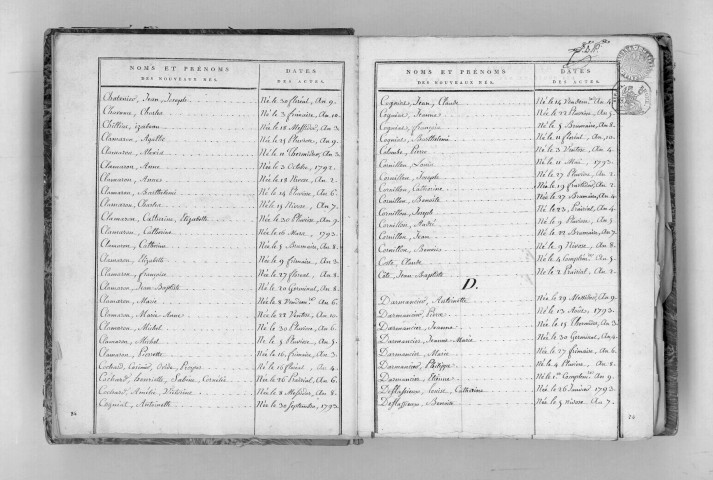 NOMS ET PRÉNOMS
DES NOUVEAUX NÉS.
DATES
DES ACTES.
Chatenier, Jean Joseph Né le 20 floréal, An 9.
Charvna, Charles Né le 3 frimaire, An 10.
Né le 18 Messidor, An 3.
Clamaron, Agathe Né le 25 Pluviose, An 9.
Clamaron, Né le 11 Thermidor, An 3.
Clamaron, Anne Né le 3 Octobre, 1792.
Clamaron, Né le 18 Nivose, An 2.
Clamaron, Barthelémi Né le 14 Pluviose, An 6.
Clamaron, Charles Né le 19 Nivose, An 7.
Clamaron, Catherine, Elizabeth Né le 30 Pluviose, An 9.
Clamaron, Catherine Né le 16 Mars, 1793.
Clamaron, Catherine Né le 5 Brumaire, An 8.
Clamaron, Elizabeth Né le 9 frimaire, An 3.
Clamaron, françoise Né le 27 floréal, An 8.
Clamaron, Jean Baptiste Né le 20 Germinal, An 8.
Clamaron, Marie Né le 8 Vendém.re An 6.
Clamaron, Marie Anne Né le 22 Ventose, An 10.
Clamaron, Michel Né le 30 Pluviose, An 6.
Clamaron, Michel Né le 5 Pluviose, An 5.
Clamaron, Pierrette Né le 16 frimaire, An 3.
Cochard, Né le 16 floréal, An 4.
Cochard, Henriette, Sabine, Cornélie Né le 26 Prairial, An 6.
Cochard, Amélie, Victorine Né le 8 Messidor, An 8.
Cogniat, Antoinette Né le 30 Septembre, 1792.
74
NOMS ET PRÉNOMS
DES NOUVEAUX NÉS.
DATES
DES ACTES.
Cogniat, Jean, Claude Né le 14 Vendém.re An 4.
Cogniat, Jeanne Né le 22 Pluviose, An 5.
Cogniat, françois Né le 5 Brumaire, An 8.
Cogniat, Barthelémi Né le 11 floréal, An 10.
Colombe, Pierre Né le 3 Ventose, An 4.
Cornillon, Louis Né le 11 Mai, 1793.
Cornillon, Joseph Né le 27 Pluviose, An 2.
Cornillon, Catherine Né le 19 fructidor, An 2.
Cornillon, Benoite Né le 27 Brumaire, An 4.
Cornillon, Joseph Né le 23, Prairial, An 4.
Cornillon, Né le 9 Pluviose, An 5.
Cornillon, Jean Né le 22 Brumaire, An 7.
Cornillon, Benoit Né le 9 Nivose, An 8.
Cote, Claude Né le 4 Complém.re An 5.
Cote, Jean Baptiste Né le 2 Prairial, An 2.
D.
Darmancier, Antoinette Né le 29 Messidor, An 9.
Darmancier, Pierre Né le 13 Août, 1793.
Darmancier, Jeanne Né le 15 Thermidor, An 3.
Darmancier, Jeanne Marie Né le 30 Germinal, An 4.
Darmancier, Marie Né le 27 frimaire, An 6.
Darmancier, Philippe Né le 4 Pluviose, An 8.
Darmancier, Etienne Né le 1er Complém.re An 9.
Deflassieux, Louise, Catherine Né le 26 Janvier, 1793.
Deflassieux, Benoite Né le 5 Nivose, An 7.
74